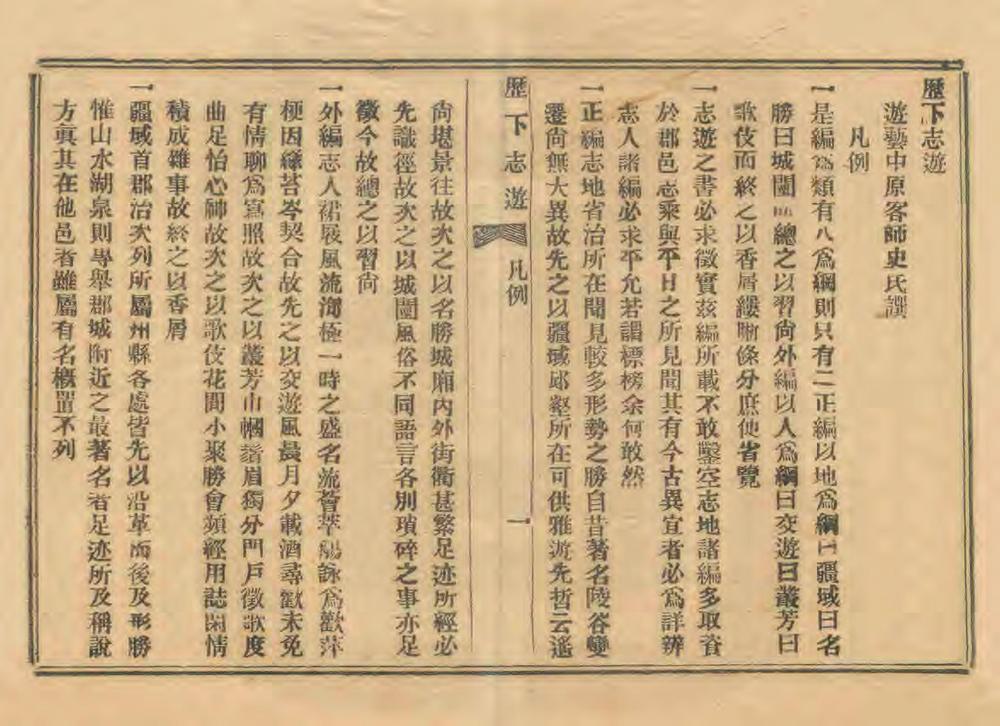 歷下志遊
遊藝中原客師史氏譔
凡例
一是編爲類有八爲綱則只有二正編以地爲綱曰疆域曰名
勝曰城闉而總之以習尙外編以人爲綱曰交遊曰叢芳曰
歌伎而終之以香屑縷晰條分庶便省覽
一志遊之書必求徵實茲編所載不敢鑿空志地諸編多取資
於郡邑志乘與平日之所見聞其有今古異宜者必爲詳辨
志人諸編必求平允若謂標榜余何敢然
一正編志地省治所在聞見較多形勢之勝自昔著名陵谷變
遷尙無大異故先之以疆域邱壑所在可供雅遊先哲云遙
歷下志遊
凡例
一
尙堪景往故次之以名勝城廂內外街衢甚繁足迹所經必
先識徑故次之以城闉風俗不同語言各別瑣碎之事亦足
徵今故總之以習尙
一外編志人裙屐風流極一時之盛名流薈萃觴詠爲歡萍
梗因緣苔岑契合故先之以交遊風晨月夕載酒尋歡未免
有情聊爲寫照故次之以叢芳巾幗鬚眉獨分門戶徵歌度
曲足怡心神故次之以歌伎花間小聚勝會頻經用誌閑情
積成雜事故終之以香屑
一疆域首郡治次列所屬州縣各處皆先以沿革而後及形勝
惟山水湖泉則專舉郡城附近之最著名者足迹所及稱說
方眞其在他邑者雖屬有名概置不列